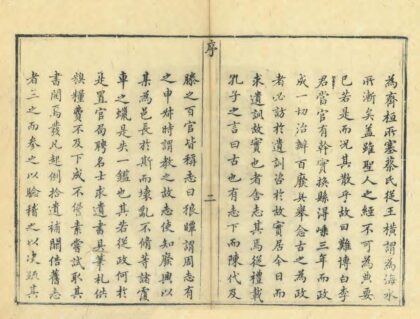 為齊桓所塞蔡氏從王橫謂為海水
所漸矣蓋雖聖人之經不可為典要
已若是而況其散乎故曰難博白李
君當官有幹實換縣得嵊三年而政
成一切治辦百廢具舉念古之為政
者必訪於遺訓咨於故實居今日而
求遺訓故實也者舍志其焉從禮載
孔子之言曰古也有志下而陳代及
序
二
滕之百官皆稱志曰狼瞫謂周志有
之申叔時謂教之故志使知廢興以
某為邑長於斯而壞亂不脩等諸
車之是失一鑑也其若從政何於
是置官局聘名士求遺書具筆札供
饌糧費不及下咸不素嘗試取其
書閱焉發凡起例拾遺補闕倍舊志
者三之而叅之以驗稽之以決疏其